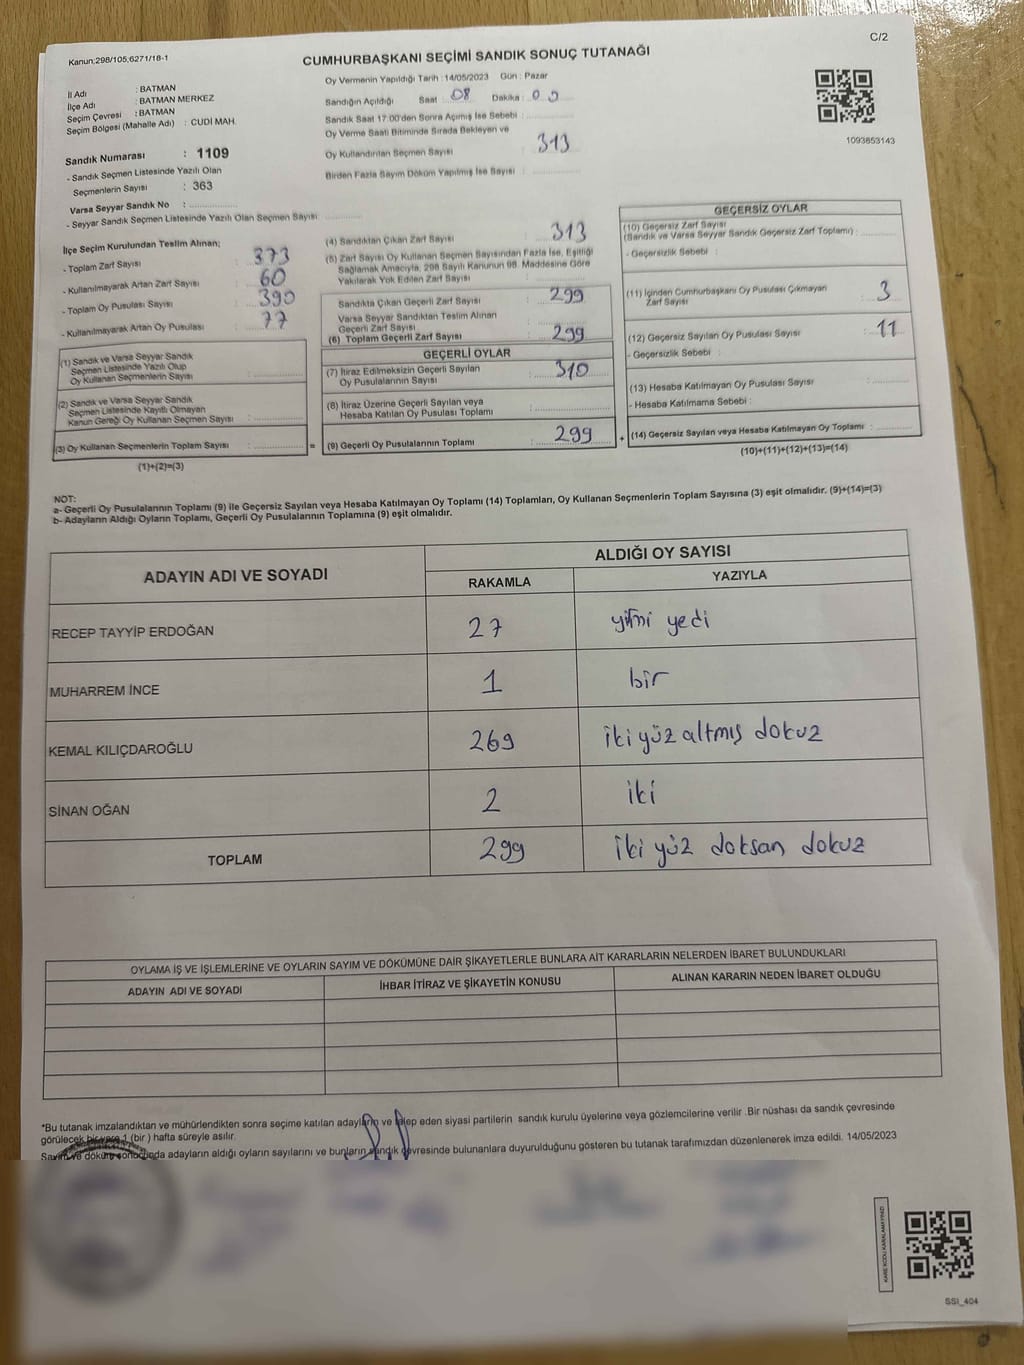 C/2
Kanun:298/105,6271/18-1
CUMHURBAŞKANI SEÇİMİ SANDIK SONUÇ TUTANAĞI
İl Adı : BATMAN
İlçe Adı : BATMAN MERKEZ
Seçim Çevresi : BATMAN
Seçim Bölgesi (Mahalle Adı) : CUDİ MAH.
Sandık Numarası : 1109
- Sandık Seçmen Listesinde Yazılı Olan
Seçmenlerin Sayısı : 363
Varsa Seyyar Sandık No :
- Seyyar Sandık Seçmen Listesinde Yazılı Olan Seçmen Sayısı:
Oy Vermenin Yapıldığı Tarih :14/05/2023 Gün : Pazar
Sandığın Açıldığı Saat : 08 Dakika : 00
Sandık Saat 17:00'den Sonra Açımış İse Sebebi :
Oy Verme Saati Bitiminde Sırada Bekleyen ve
Oy Kullandırılan Seçmen Sayısı : 313
Birden Fazla Sayım Döküm Yapılmış İse Sayısı :
1093853143
İlçe Seçim Kurulundan Teslim Alınan;
- Toplam Zarf Sayısı : 373
- Kullanılmayarak Artan Zarf Sayısı : 60
- Toplam Oy Pusulası Sayısı : 390
- Kullanılmayarak Artan Oy Pusulası : 77
(1) Sandık ve Varsa Seyyar Sandık
Seçmen Listesinde Yazılı Olup
Oy Kullanan Seçmenlerin Sayısı :
(2) Sandık ve Varsa Seyyar Sandık
Seçmen Listesinde Kayıtlı Olmayan
Kanun Gereği Oy Kullanan Seçmen Sayısı :
(3) Oy Kullanan Seçmenlerin Toplam Sayısı : =
(1)+(2)=(3)
(4) Sandıktan Çıkan Zarf Sayısı : 313
(5) Zarf Sayısı Oy Kullanan Seçmen Sayısından Fazla İse, Eşitliği
Sağlamak Amacıyla, 298 Sayılı Kanunun 98. Maddesine Göre
Yakılarak Yok Edilen Zarf Sayısı :
Sandıkta Çıkan Geçerli Zarf Sayısı : 299
Varsa Seyyar Sandıktan Teslim Alınan
Geçerli Zarf Sayısı :
(6) Toplam Geçerli Zarf Sayısı : 299
GEÇERLİ OYLAR
(7) İtiraz Edilmeksizin Geçerli Sayılan
Oy Pusulalarının Sayısı : 310
(8) İtiraz Üzerine Geçerli Sayılan veya
Hesaba Katılan Oy Pusulası Toplamı :
(9) Geçerli Oy Pusulalarının Toplamı : 299 +
GEÇERSİZ OYLAR
(10) Geçersiz Zarf Sayısı
(Sandık ve Varsa Seyyar Sandık Geçersiz Zarf Toplamı) :
- Geçersizlik Sebebi :
(11) İçinden Cumhurbaşkanı Oy Pusulası Çıkmayan
Zarf Sayısı : 3
(12) Geçersiz Sayılan Oy Pusulası Sayısı : 11
- Geçersizlik Sebebi :
(13) Hesaba Katılmayan Oy Pusulası Sayısı :
- Hesaba Katılmama Sebebi :
(14) Geçersiz Sayılan veya Hesaba Katılmayan Oy Toplamı :
(10)+(11)+(12)+(13)=(14)
NOT:
a- Geçerli Oy Pusulalarının Toplamı (9) ile Geçersiz Sayılan veya Hesaba Katılmayan Oy Toplamı (14) Toplamları, Oy Kullanan Seçmenlerin Toplam Sayısına (3) eşit olmalıdır. (9)+(14)=(3)
b- Adayların Aldığı Oyların Toplamı, Geçerli Oy Pusulalarının Toplamına (9) eşit olmalıdır.
ADAYIN ADI VE SOYADI ALDIĞI OY SAYISI
RAKAMLA YAZIYLA
RECEP TAYYİP ERDOĞAN 27 yirmi yedi
MUHARREM İNCE 1 bir
KEMAL KILIÇDAROĞLU 269 iki yüz altmış dokuz
SİNAN OĞAN 2 iki
TOPLAM 299 iki yüz doksan dokuz
OYLAMA İŞ VE İŞLEMLERİNE VE OYLARIN SAYIM VE DÖKÜMÜNE DAİR ŞİKAYETLERLE BUNLARA AİT KARARLARIN NELERDEN İBARET BULUNDUKLARI
ADAYIN ADI VE SOYADI İHBAR İTİRAZ VE ŞİKAYETİN KONUSU ALINAN KARARIN NEDEN İBARET OLDUĞU
*Bu tutanak imzalandıktan ve mühürlendikten sonra seçime katılan adayların ve talep eden siyasi partilerin sandık kurulu üyelerine veya gözlemcilerine verilir .Bir nüshası da sandık çevresinde
görülecek bir yere 1 (bir ) hafta süreyle asılır.
Sayım ve döküm sonucunda adayların aldığı oyların sayılarını ve bunların sandık çevresinde bulunanlara duyurulduğunu gösteren bu tutanak tarafımızdan düzenlenerek imza edildi. 14/05/2023
KARE KODU KARALAMAYINIZ!
SSI_404